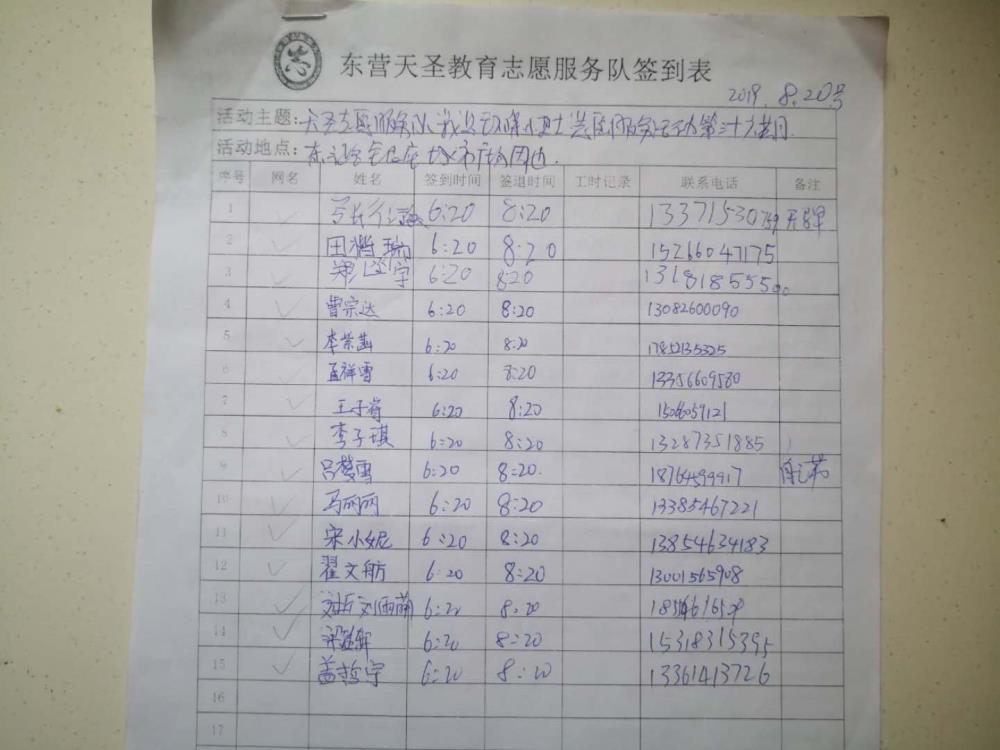 东营天圣教育志愿服务队签到表
2019.8.20号
活动主题:天圣志愿服务队
活动地点:
序号 网名 姓名 签到时间 签退时间 工时记录 联系电话 备注
1 6:20 8:20 13371530759
2 田 瑞 6:20 8:20 15266047175
3 郑 学 6:20 8:20
4 曹宗达 6:20 8:20 13082600090
5 李荣茜 6:20 8:20 17852135325
6 孟祥雪 6:20 8:20 13356609580
7 王子睿 6:20 8:20
8 李子琪 6:20 8:20 13287351885
9 吕梦雪 6:20 8:20. 18764599917
10 马丽丽 6:20 8:20 13385467221
11 宋小妮 6:20 8:20 13854634183
12 翟文舫 6:20 8:20 13001565908
13 刘雨萌 6:20 8:20
14 6:20 8:20 15318315395
15 盖哲宇 6:20 8:20 13361413726
16
17